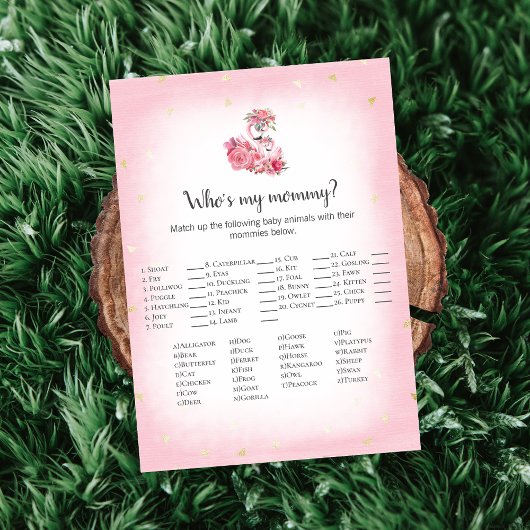 Who's my mommy?
Match up the following baby animals with their
mommies below.
1. Shoat
2. Fry
3. Polliwog
4. Puggle
5. Hatchling
6. Joey
7. Poult
8. Caterpillar
9. Eyas
10. Duckling
11. Peachick
12. Kid
13. Infant
14. Lamb
15. Cub
16. Kit
17. Foal
18. Bunny
19. Owlet
20. Cygnet
21. Calf
22. Gosling
23. Fawn
24. Kitten
25. Chick
26. Puppy
A)Alligator
B)Bear
C)Butterfly
D)Cat
E)Chicken
F)Cow
G)Deer
H)Dog
I)Duck
J)Ferret
K)Fish
L)Frog
M)Goat
N)Gorilla
O)Goose
P)Hawk
Q)Horse
R)Kangaroo
S)Owl
T)Peacock
U)Pig
V)Platypus
W)Rabbit
X)Sheep
Y)Swan
Z)Turkey